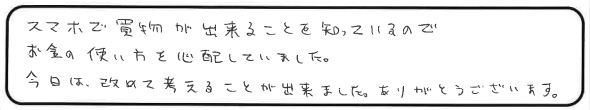 スマホで買物が出来ることを知っているので
お金の使い方を心配していました。
今日は、改めて考えることが出来ました。ありがとうございます。